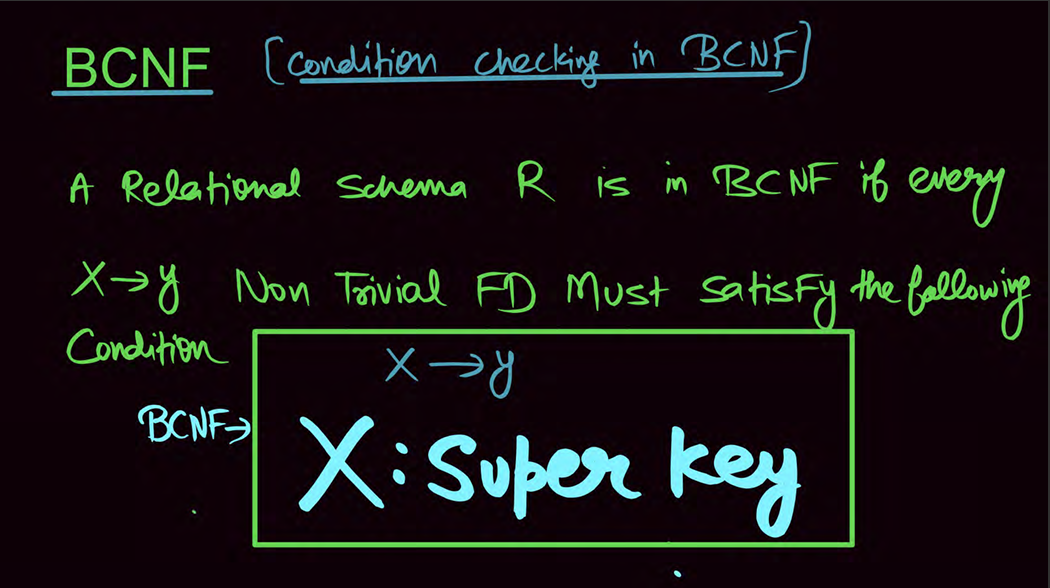 BCNF [Condition checking in BCNF]
A Relational Schema R is in BCNF if every
X→y Non Trivial FD Must satisfy the following
Condition
X→y
BCNF→
X: Super key